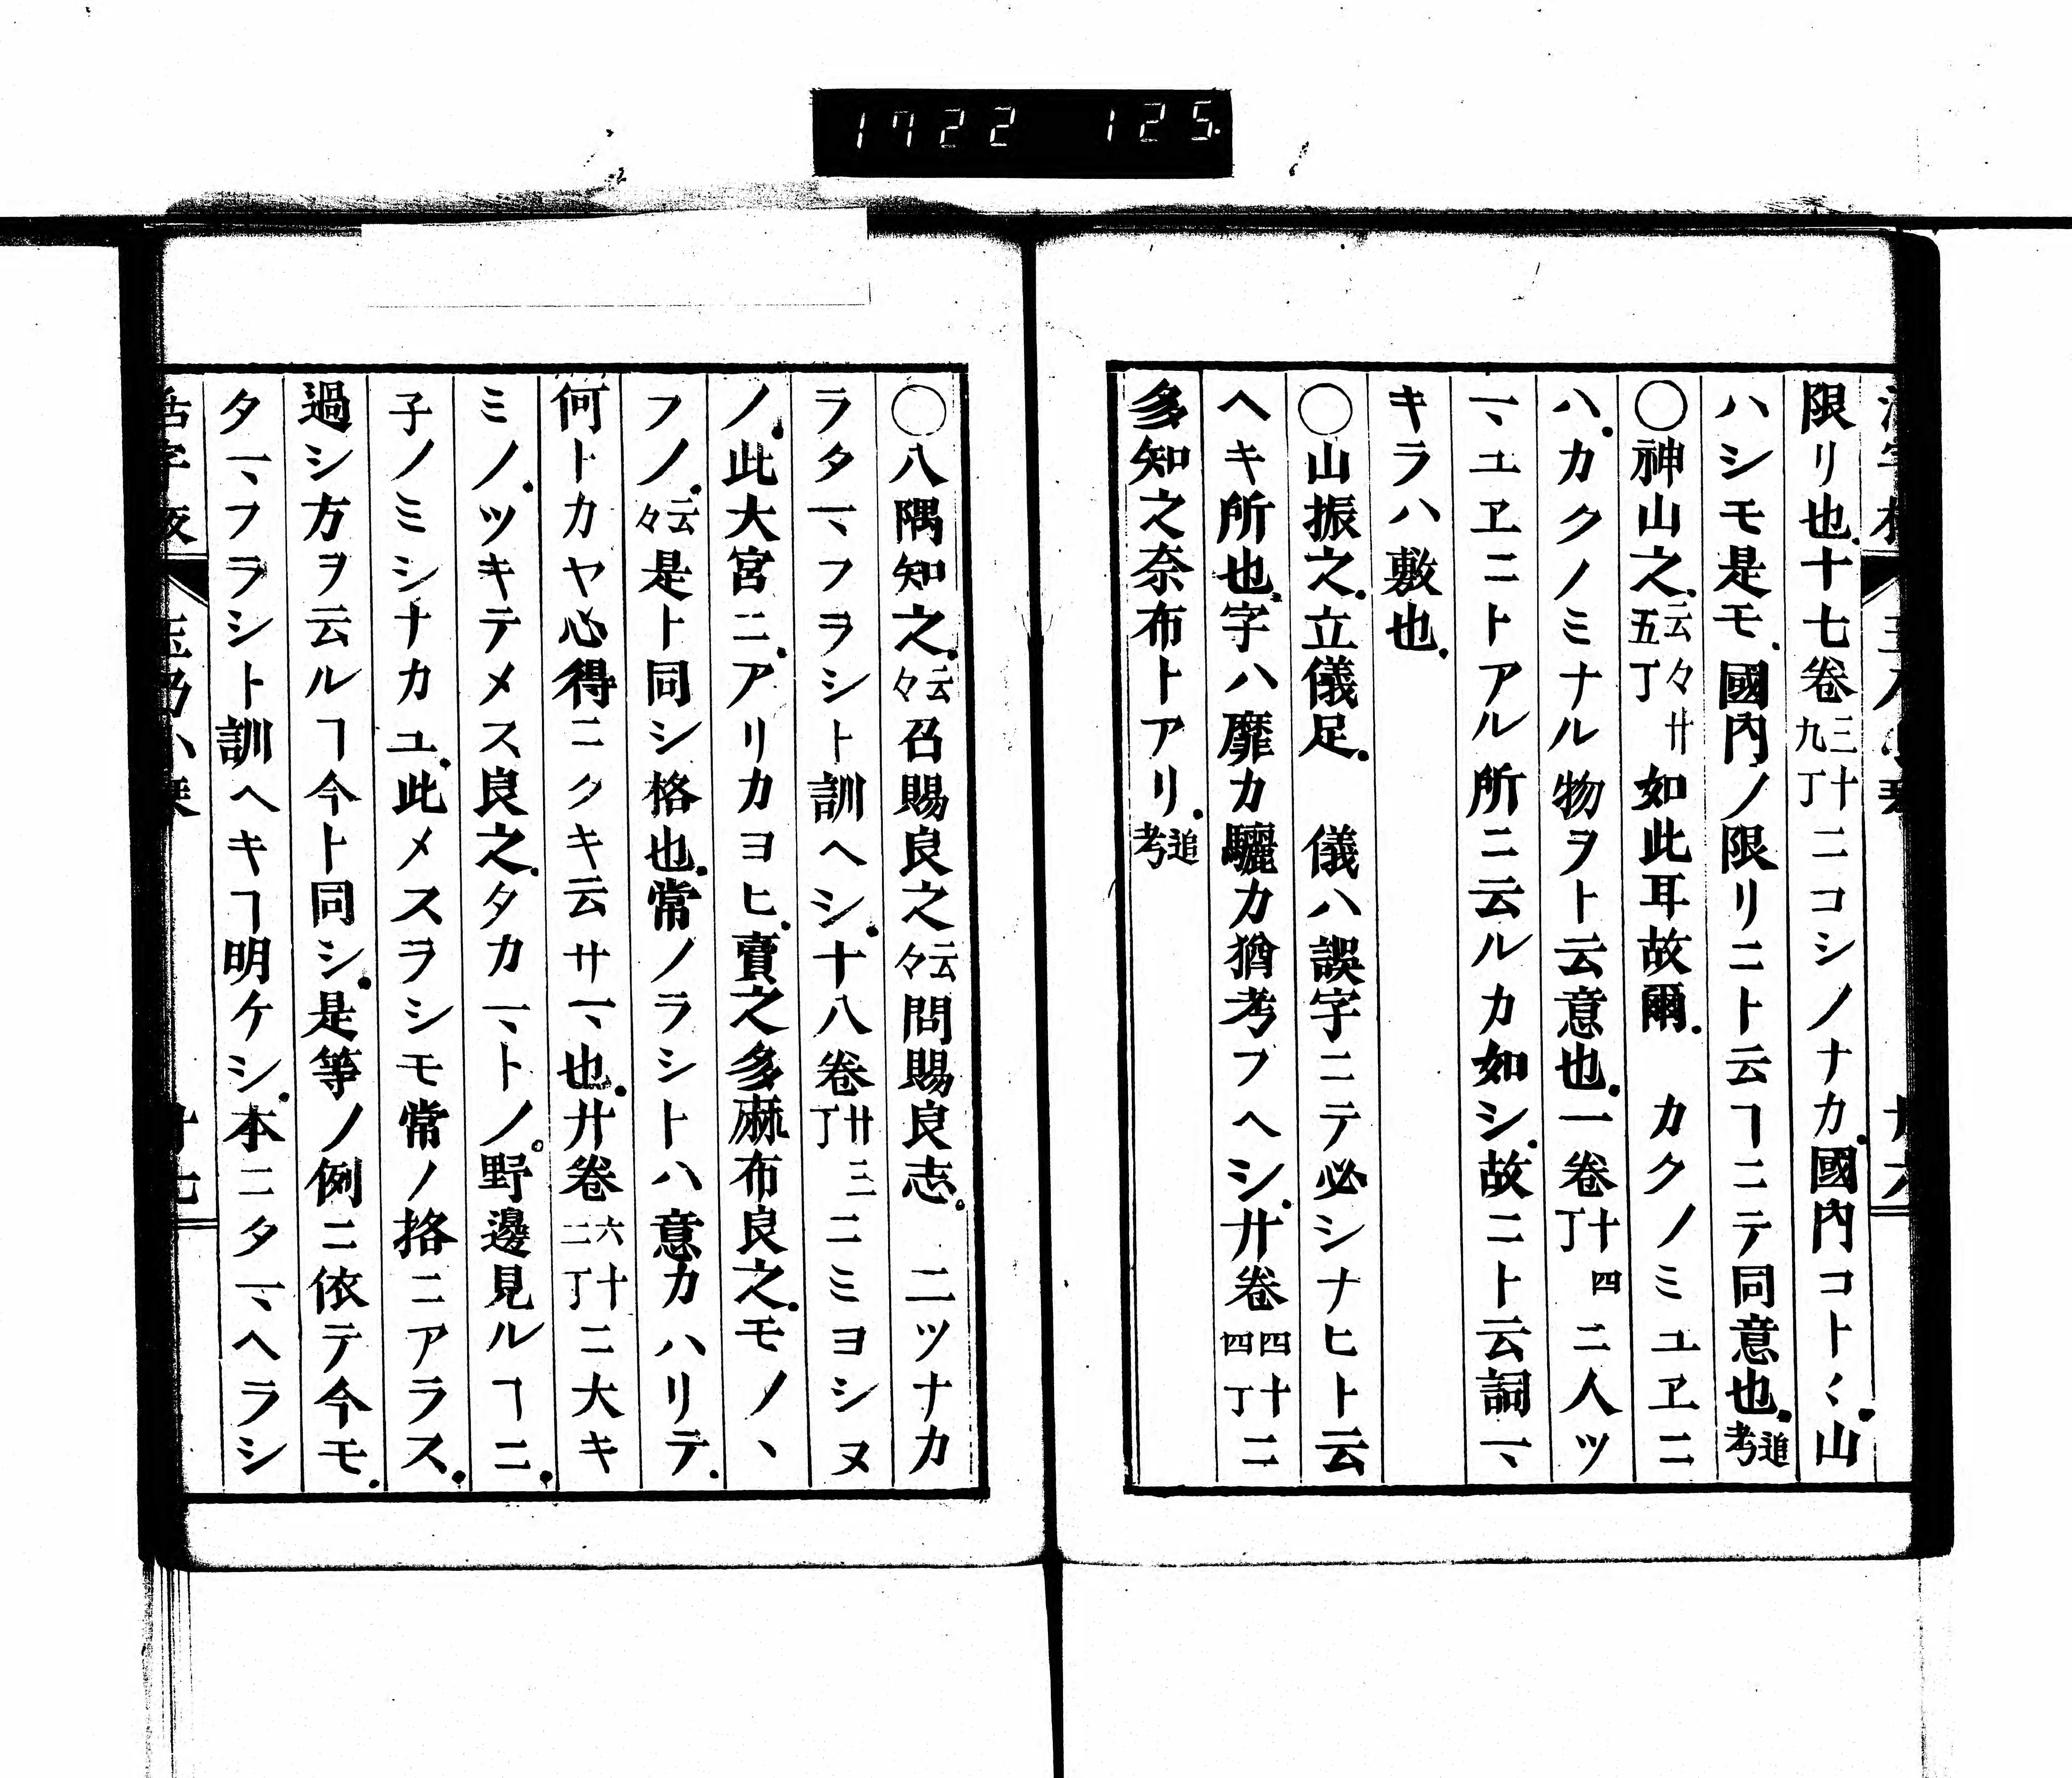 1722 125
限リ也十七卷三十九丁ニコシノナカ國内コト〱山
ハシモ是モ國内ノ限リニト云ヿニテ同意也追考
〇神山之云々廿五丁如此耳故爾 カクノミユヱニ
ハカクノミナル物ヲト云意也一卷十四丁ニ人ツ
マユヱニトアル所ニ云ルカ如シ故ニト云詞マ
キラハ敷也
〇山振之立儀足 儀ハ誤字ニテ必シナヒト云
ヘキ所也字ハ靡カ驪カ猶考フヘシ廾卷四十四丁ニ
多知之奈布トアリ追考
〇八隅知之云々召賜良之云々問賜良志 二ツナカ
ラタマフヲシト訓ヘシ十八卷廿三丁ニミヨシヌ
ノ此大宮ニアリカヨヒ賣之多麻布良之モノヽ
フノ云々是ト同シ格也常ノラシトハ意カハリテ
何トカヤ心得ニクキ云サマ也廾卷六十二丁ニ大キ
ミノツキテメス良之タカマトノ野邊見ルヿニ
子ノミシナカユ此メスヲシモ常ノ挌ニアラス
過シ方ヲ云ルヿ今ト同シ是等ノ例ニ依テ今モ
タマフラシト訓ヘキヿ明ケシ本ニタマヘラシ